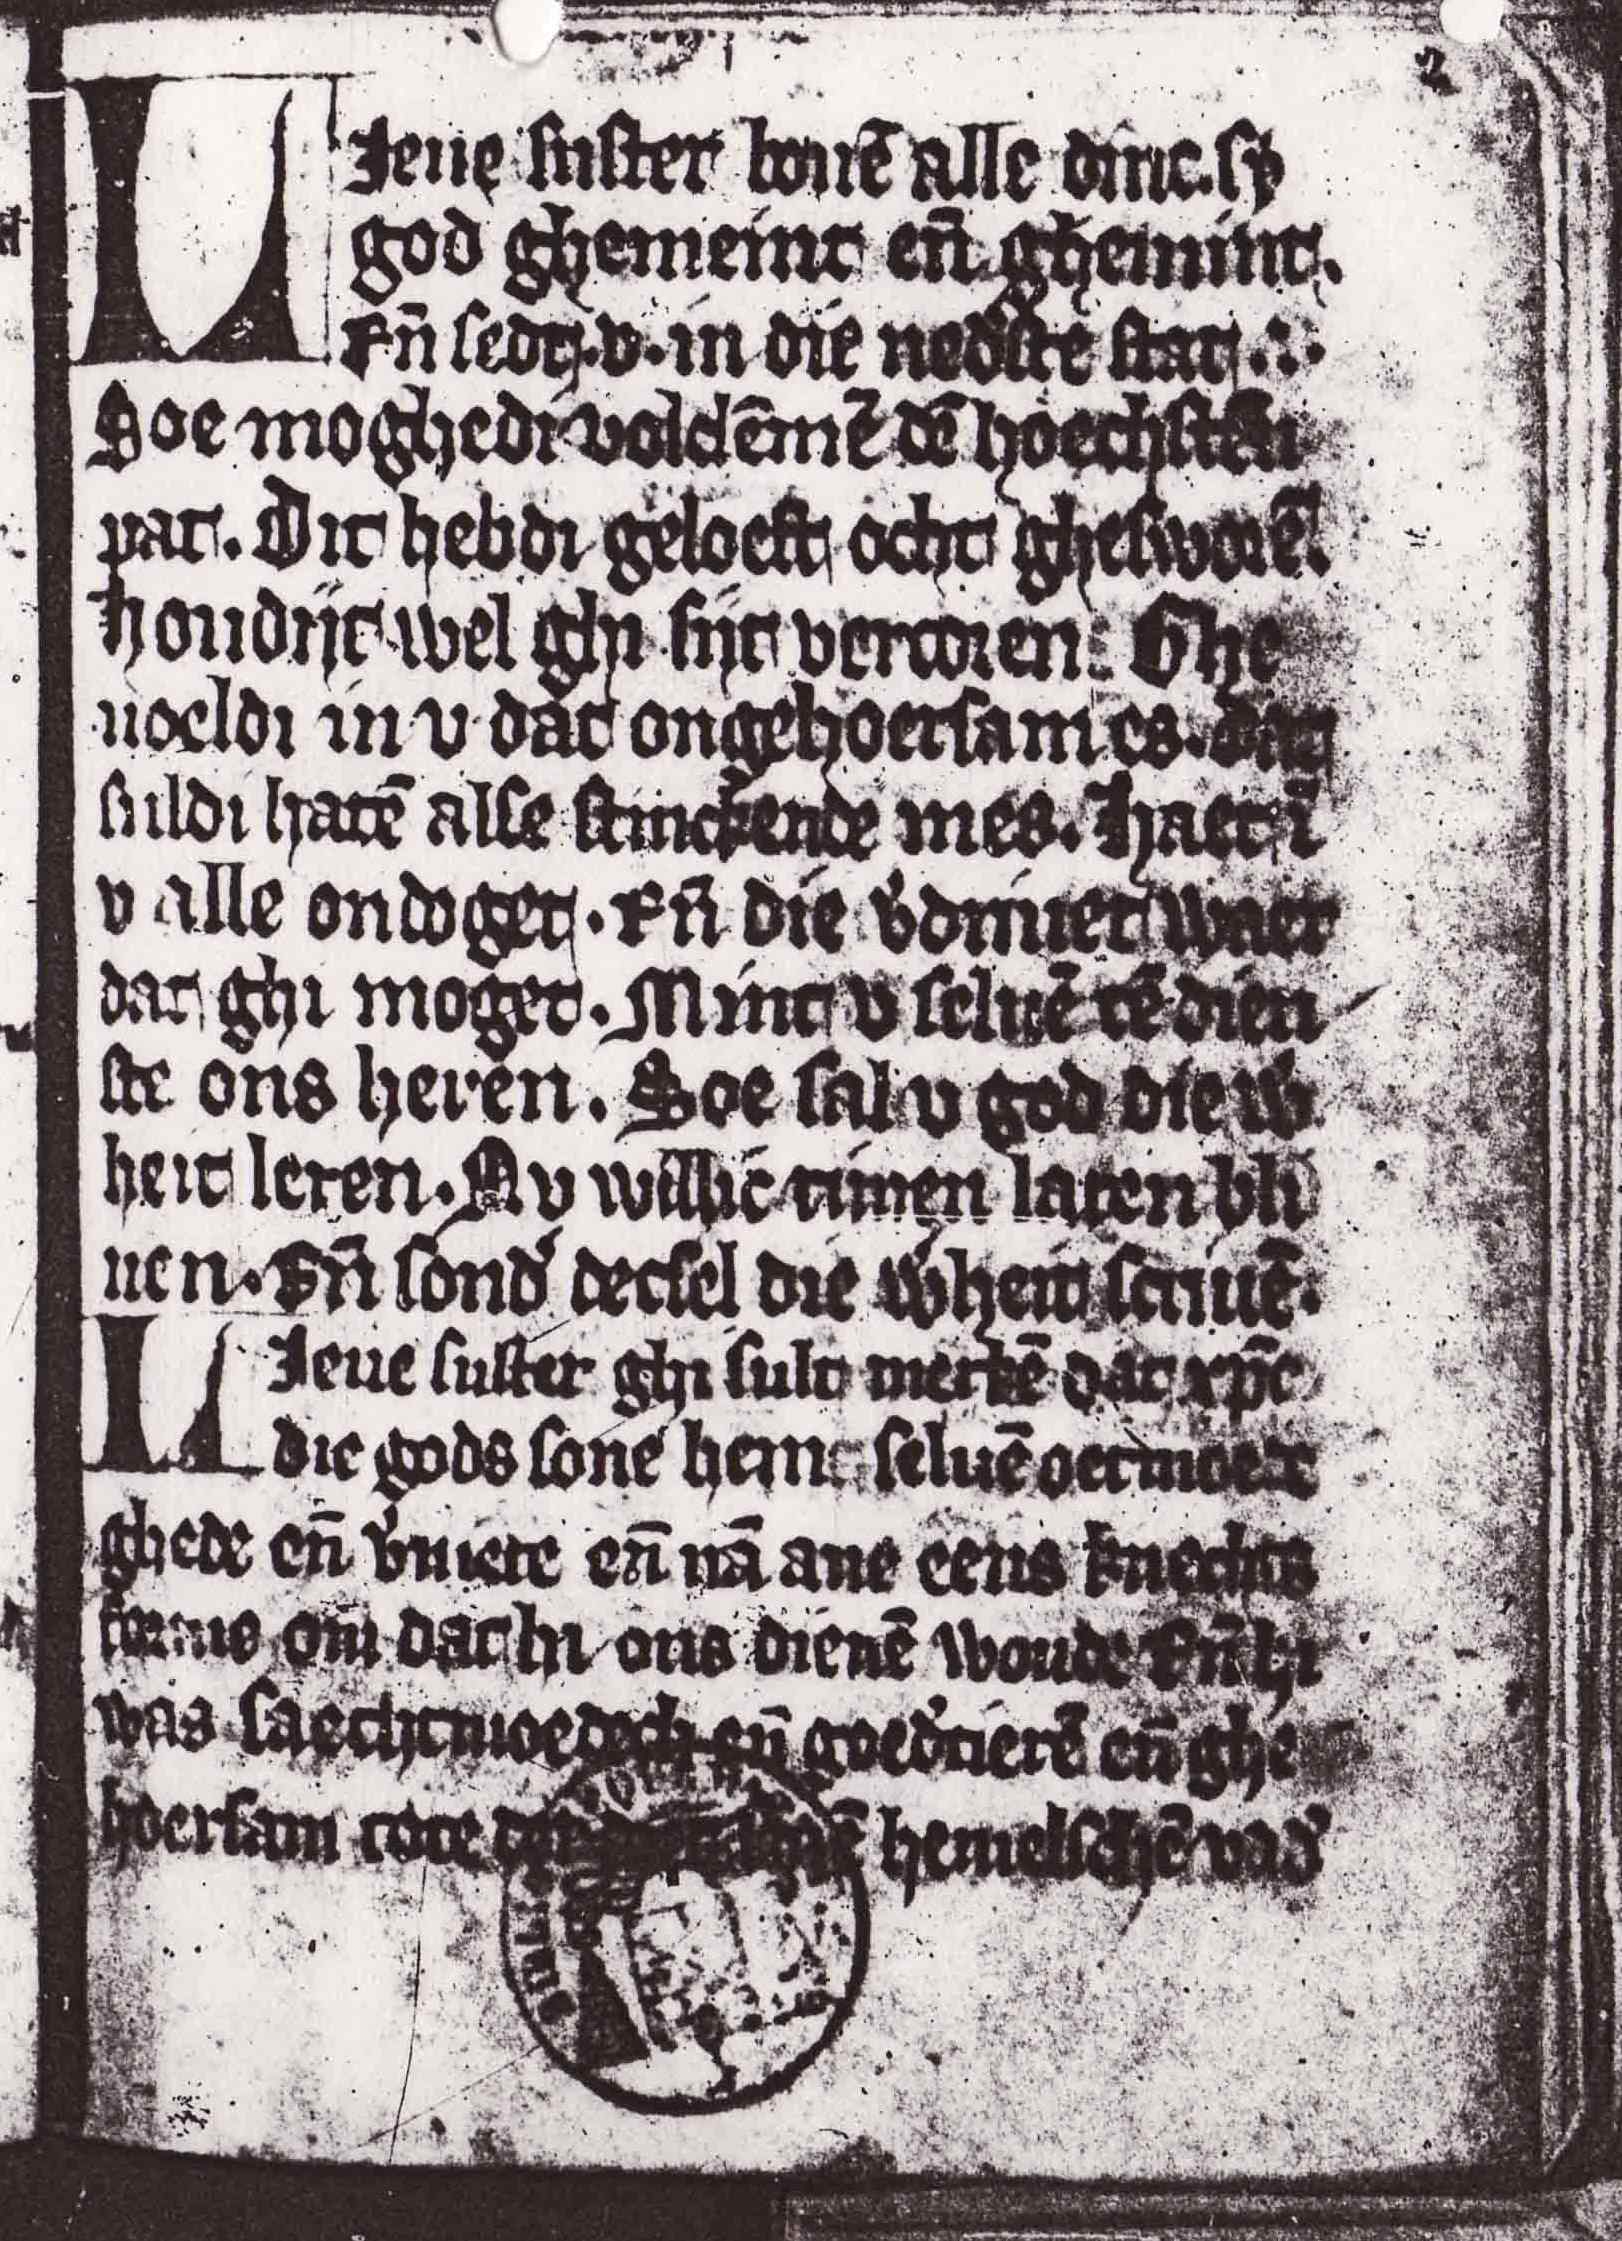 2
LIeue suster bouē alle dinc. sy
god ghemeint eñ ghemint.
Eñ sedt .v. in die ned'ste stat ∴
Soe moghedi volclēmē dē hoechsten
pat. Dit hebdi geloeft ocht ghesworē.
houdijt wel ghi sijt vercoren. Ghe
uoeldi in v dat ongehoersam es. dat
suldi hatē alse stinckende mes. Haet ī
v alle ondoget. Eñ die v'driuet waer
dat ghi moget. Mint v seluē tē dien
ste ons heren. Soe sal v god die w'
heit leren. Nv willic rimen laten bli
uen. Eñ sond' decsel die w'heit scriuē.
LIeue suster ghi sult merkē dat xp̄c
die gods sone hem seluē oetmoe
ghede eñ v'niete eñ nā ane eens knechts
forme om̄ dat hi ons dienē woude Eñ hi
was saechtmoedech eñ goed'tierē eñ ghe
hoersam tote hemelschē vad'